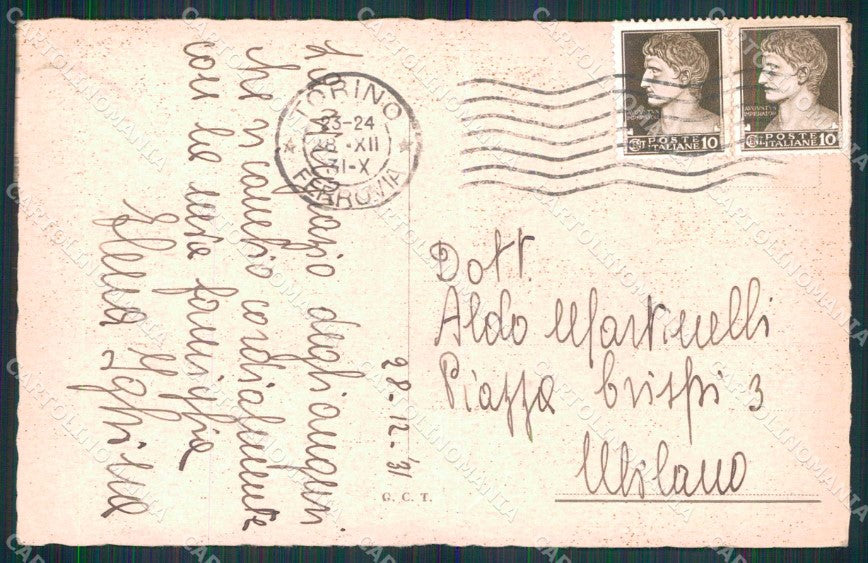 La ringrazio degli auguri
che ricambio cordialmente
con la mia famiglia
Elena
28-12-'31
G. C. T.
TORINO
23-24
28 .XII
31-X
FERROVIA
AVGVSTVS
IMPERATOR
POSTE
ITALIANE 10
AVGVSTVS
IMPERATOR
POSTE
ITALIANE 10
Dott.
Aldo Martinelli
Piazza Crispi 3
Milano
CARTOLINOMANIA